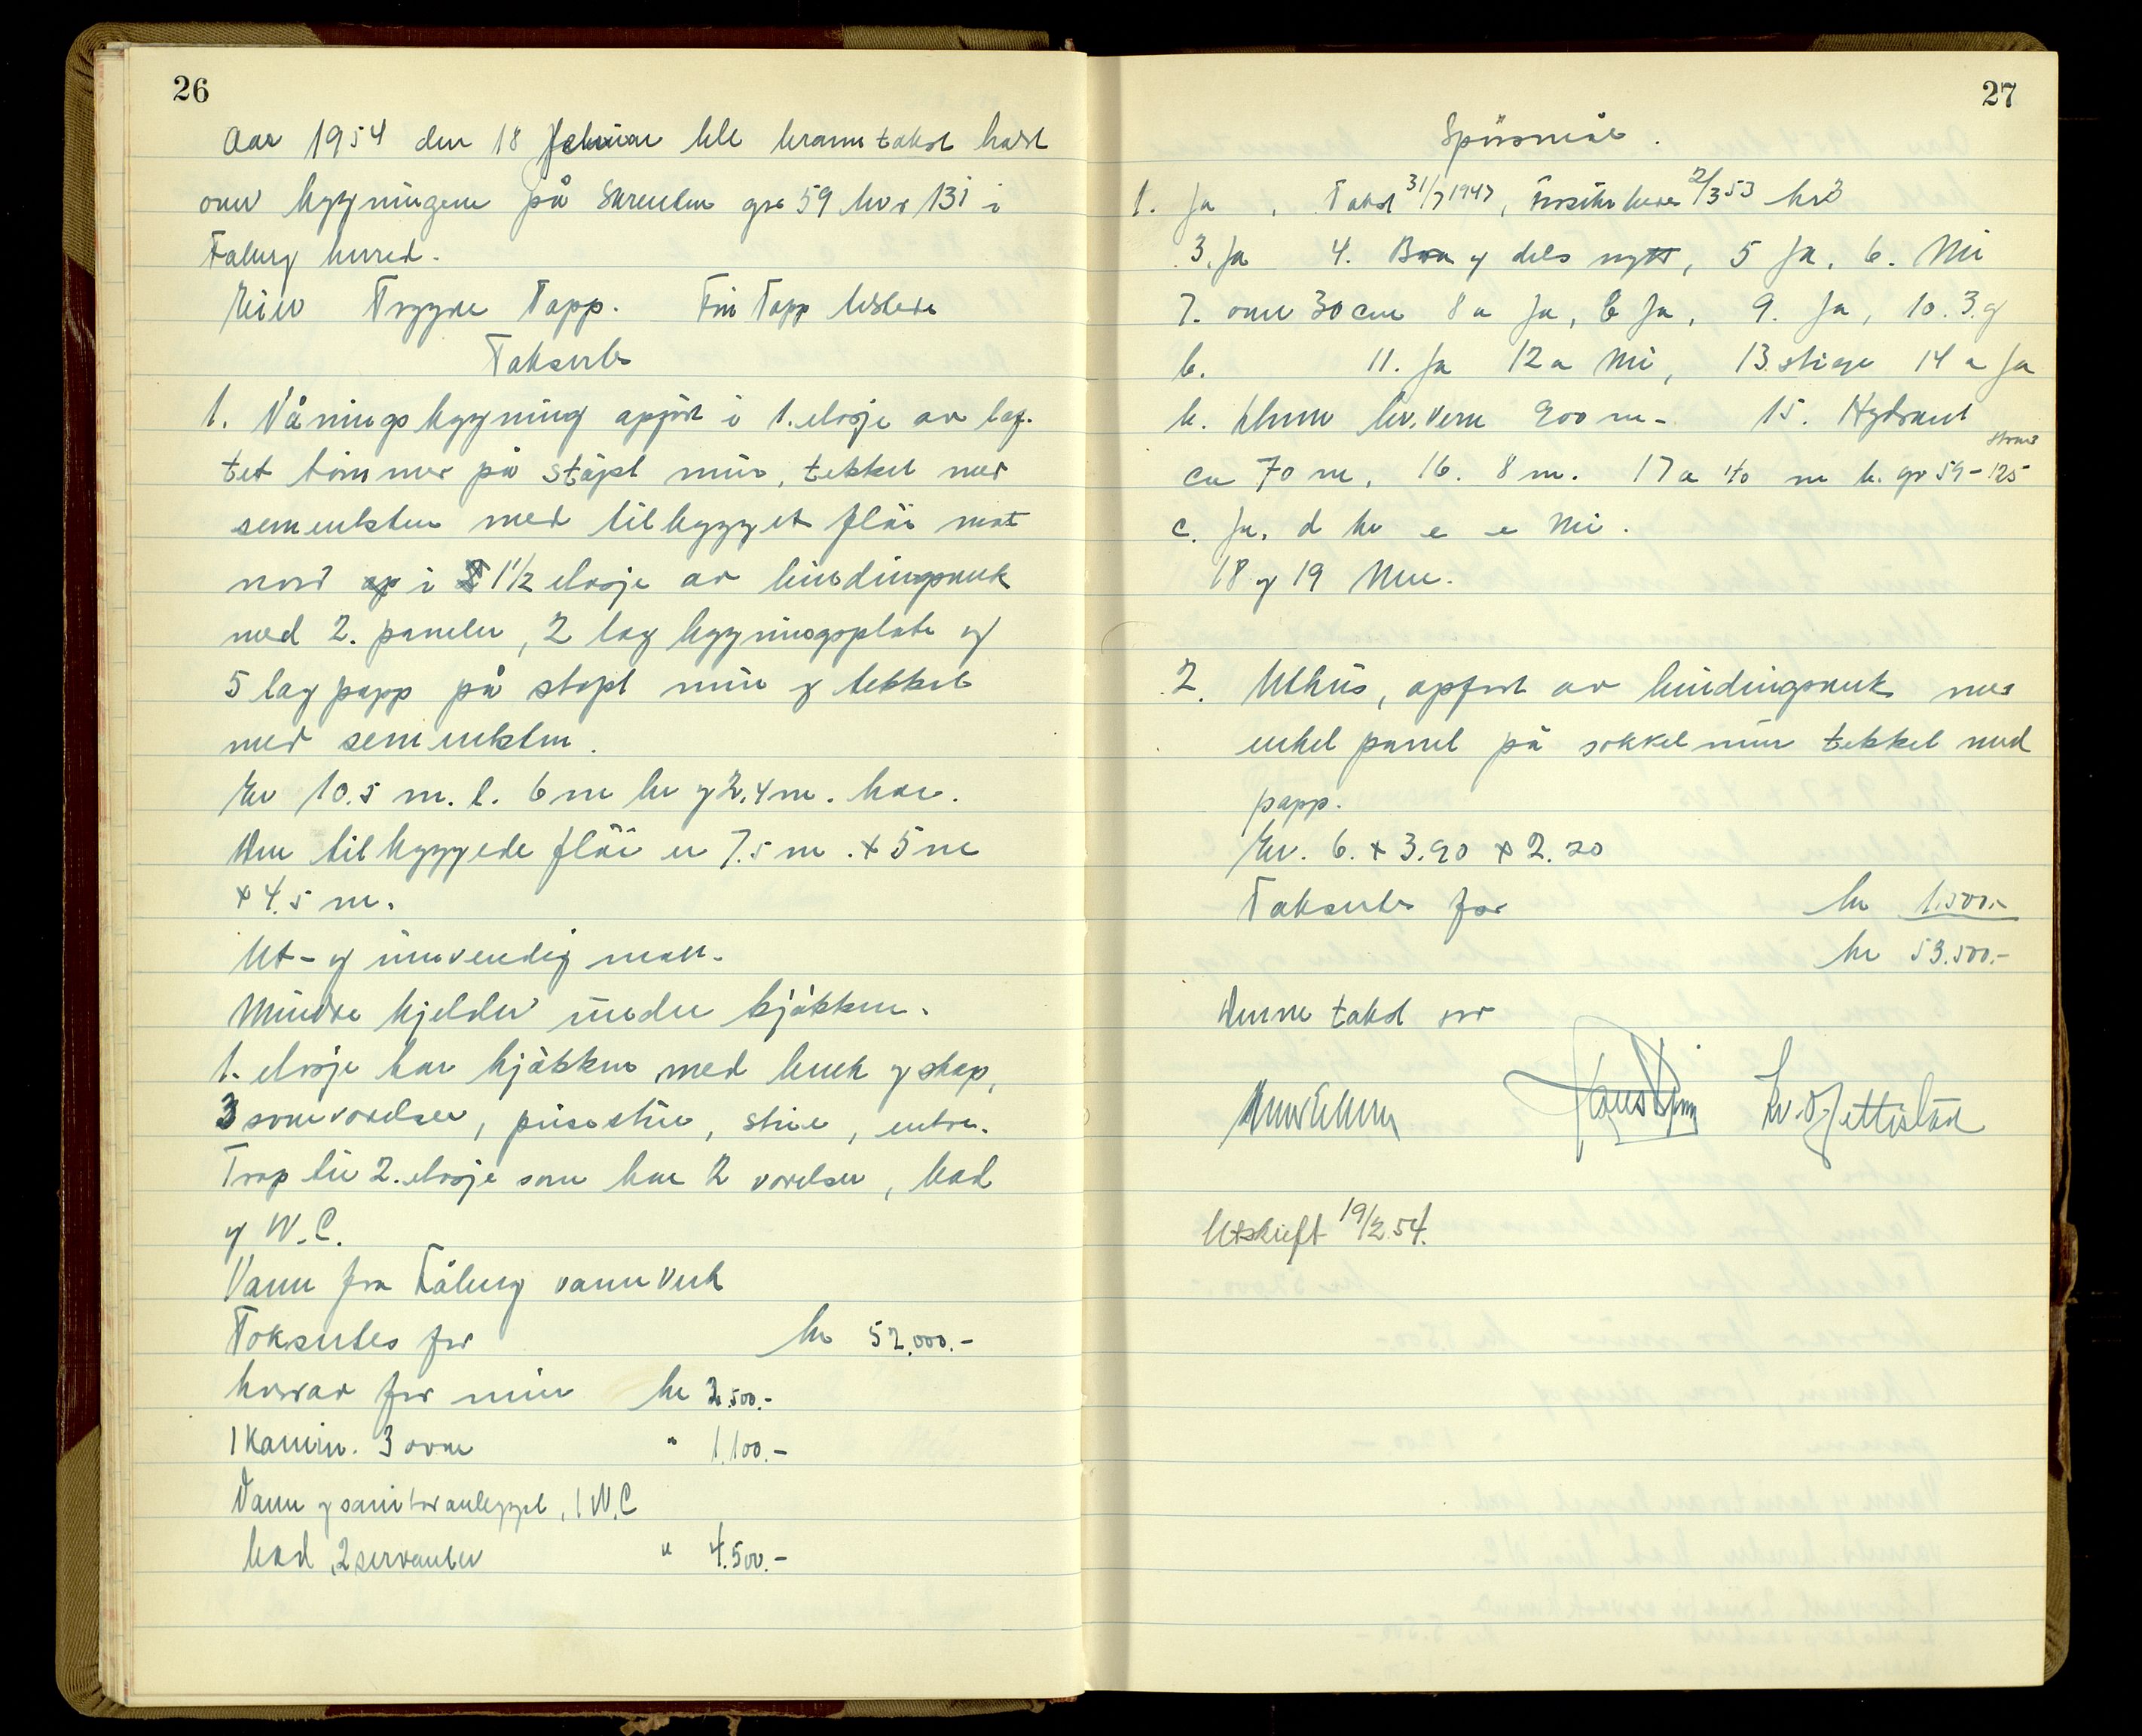 26
Aar 1954 den 18 Februar ble branntakst holdt
over bygningene på Skrenten gnr 59 bnr 131 i
Faberg herred.
Eier Trygve Tapp. Fru Tapp tilstede
Takserte
1. Våningsbygning oppført i 1. etasje av laf-
tet tømmer på støpt mur, tekket med
sementsten med tilbygget fløi mot
nord i 1 1/2 etasje av bindingsverk
med 2. paneler, 2 lag bygningsplate og
5 lag papp på støpt mur og tekket
med sementsten.
Er 10.5 m. l. 6 m br og 2.4 m. høi.
Den tilbyggede fløi er 7.5 m. x 5 m
x 4.5 m.
Ut- og innvendig malt.
Mindre kjelder under kjøkken.
1. etasje har kjøkken med benk og skap,
3 soveværelser, peisestue, stue, entre.
Trap til 2. etasje som har 2 værelser, bad
og W.C.
Vann fra Fåberg vannverk
Takseres for kr 52.000.-
herav for mur kr 2.500.-
1 Kamin. 3 ovne " 1.100.-
Vann og sanitæranlegget, 1 W.C
bad, 2 servanter " 4.500.-
27
Spørsmål.
1. Ja, Takst 31/7 1947, 2/3 53
3. Ja 4. Bra og dels nytt, 5 Ja, 6. Nei
7. over 30 cm 8 a Ja, b Ja, 9. Ja, 10. 3. og
b. 11. Ja 12 a Nei, 13 stige 14 a Ja
b. br.vern 900 m- 15. Hydrant
ca 70 m, 16. 8 m. 17 a 40 m b. gr 59-125
c. Ja, d e Nei.
18 og 19 Nei.
2. Uthus, oppført av bindingsverk med
enkel panel på sokkelmur tekket med
papp.
Er. 6. x 3.90 x 2.20
Takseres for kr 1.500.-
kr 53.500.-
Denne takst
Utskrift 19/2.54.